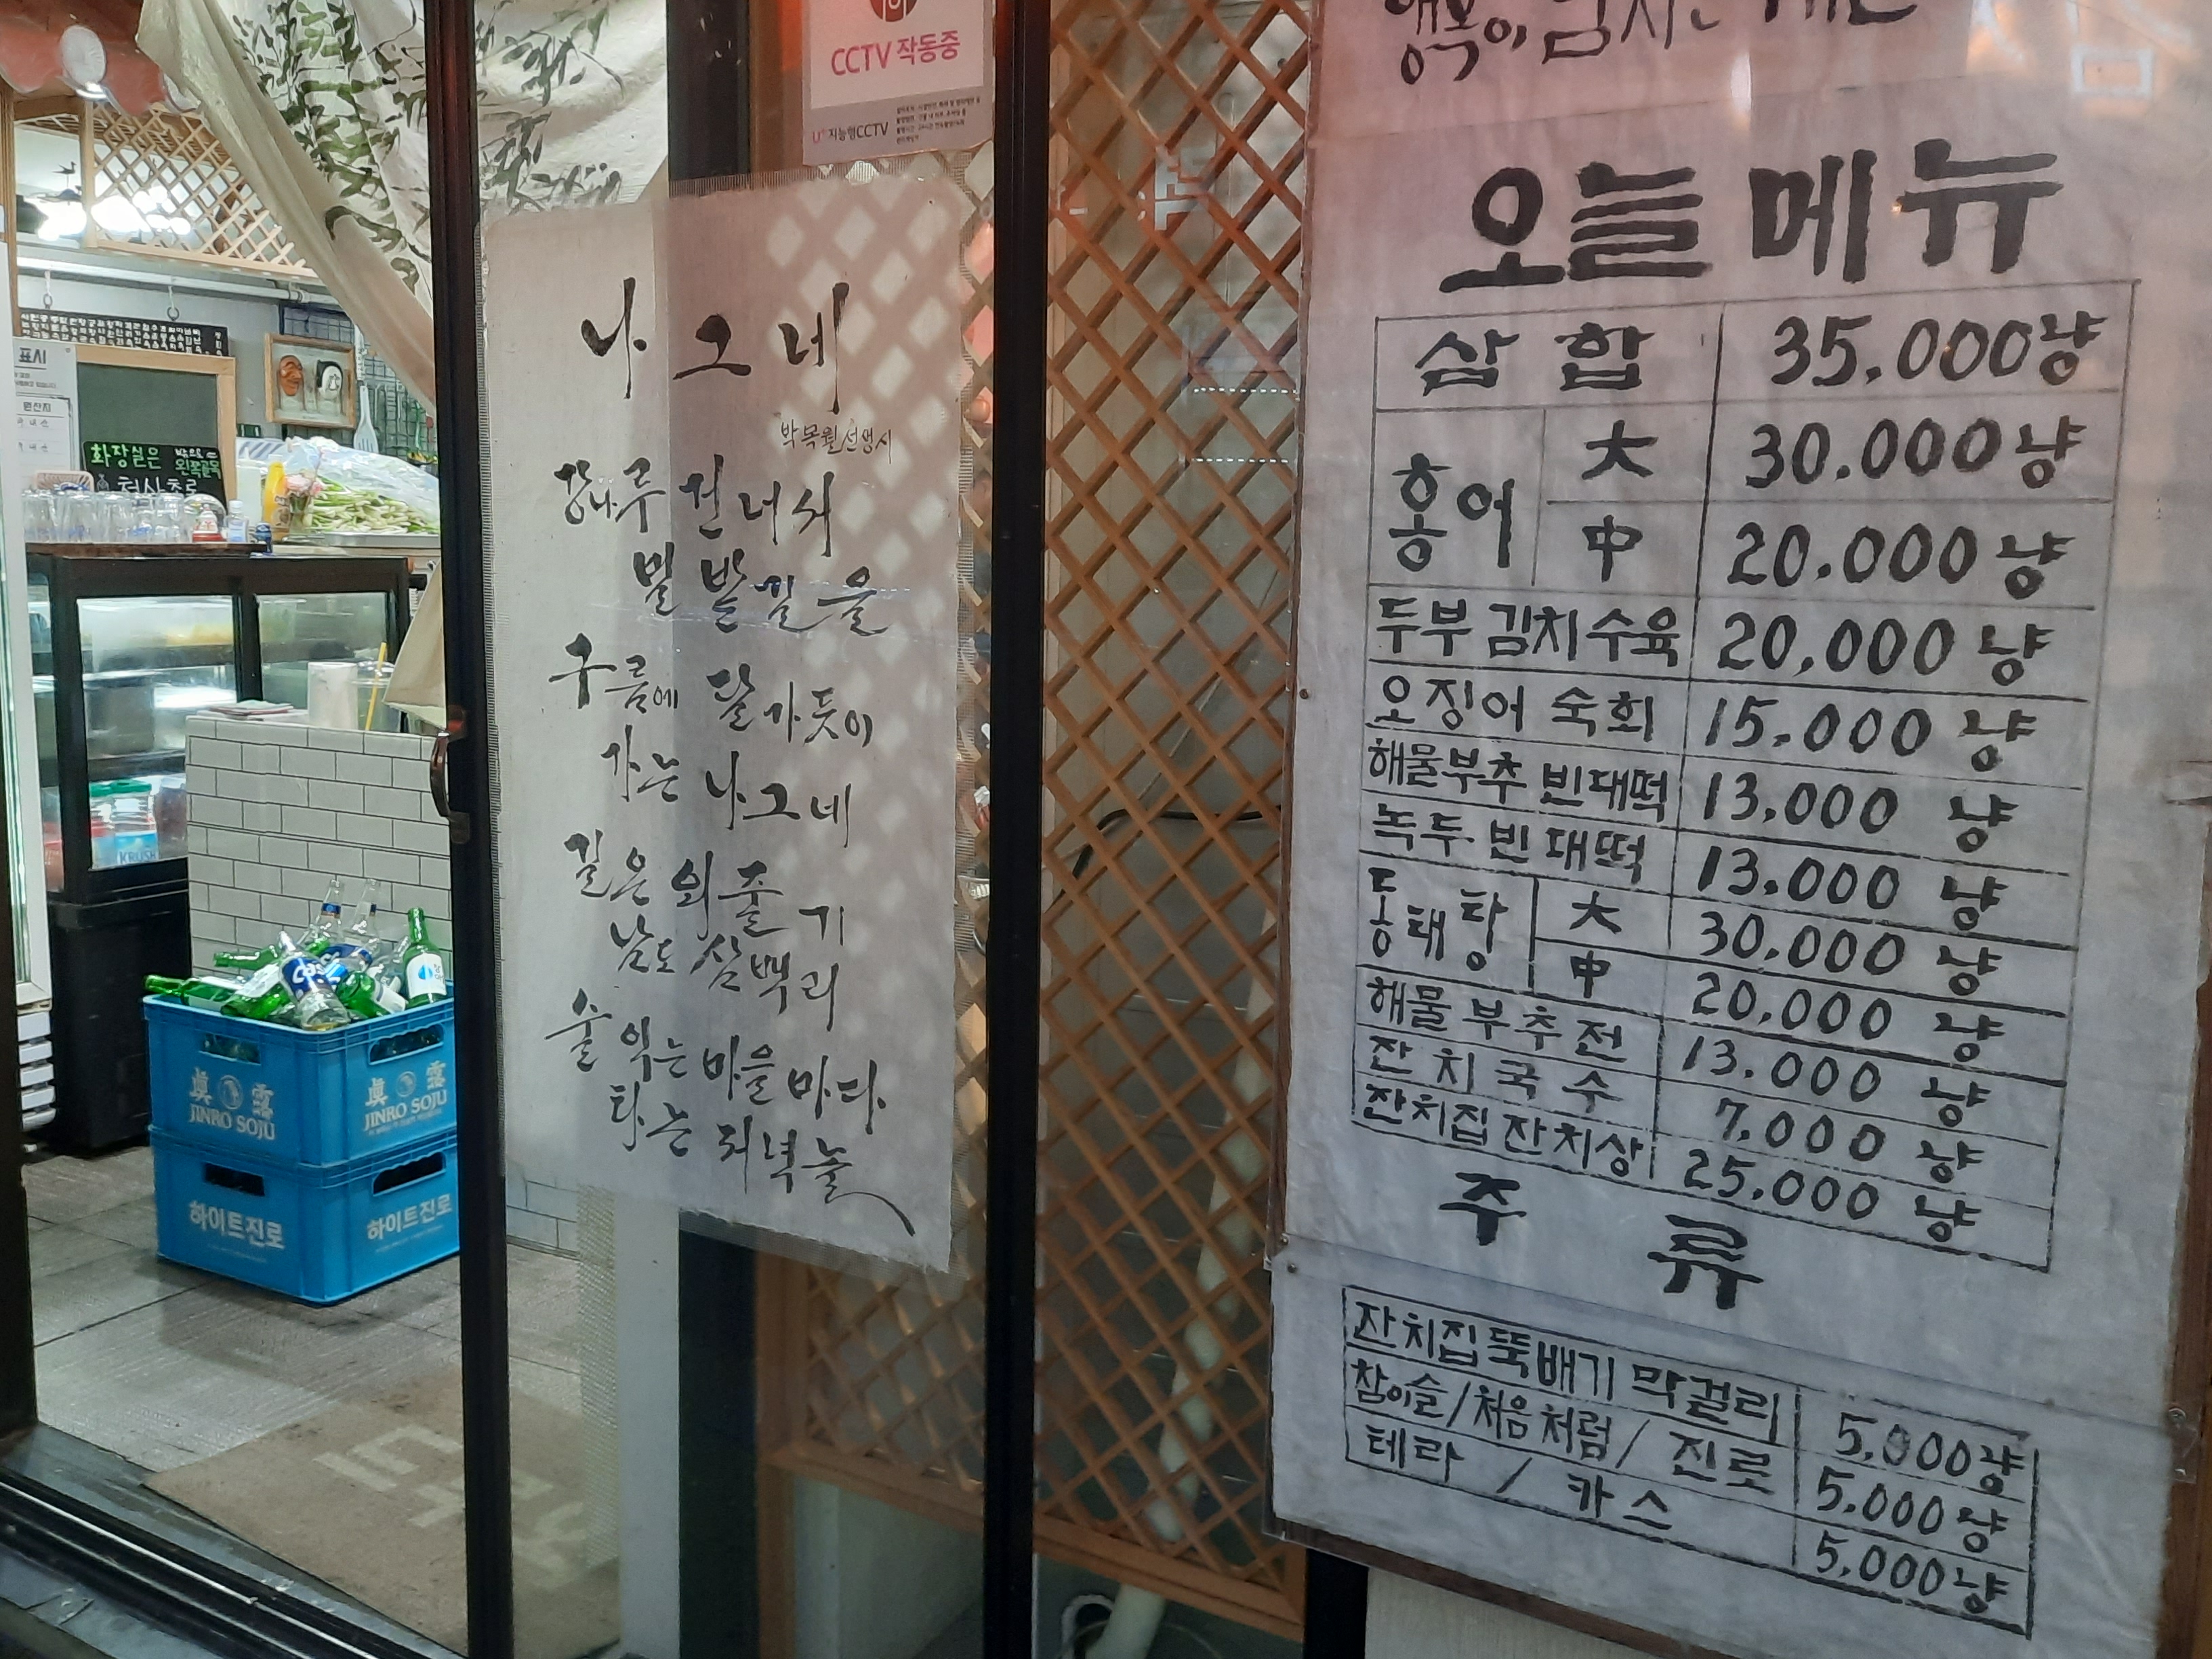 CCTV 작동중
U+ 지능형CCTV
표시
원산지
화장실은
왼쪽골목
나그네
박목월선생시
강나루 건너서
밀밭길을
구름에 달가듯이
가는 나그네
길은 외줄기
남도 삼백리
술 익는 마을마다
타는 저녁놀
KRUSH
眞露 眞露
JINRO SOJU JINRO SOJU
하이트진로 하이트진로
오늘메뉴
삼합 35,000냥
홍어 大 30.000냥
中 20.000냥
두부 김치수육 20,000냥
오징어 숙회 15.000냥
해물부추 빈대떡 13.000냥
녹두·빈대떡 13.000냥
동태탕 大 30.000냥
中 20.000냥
해물부추전 13.000냥
잔치국수 7.000냥
잔치집잔치상 25.000냥
주류
잔치집뚝배기 막걸리 5.000냥
참이슬/처음처럼/진로 5.000냥
테라 / 카스 5.000냥